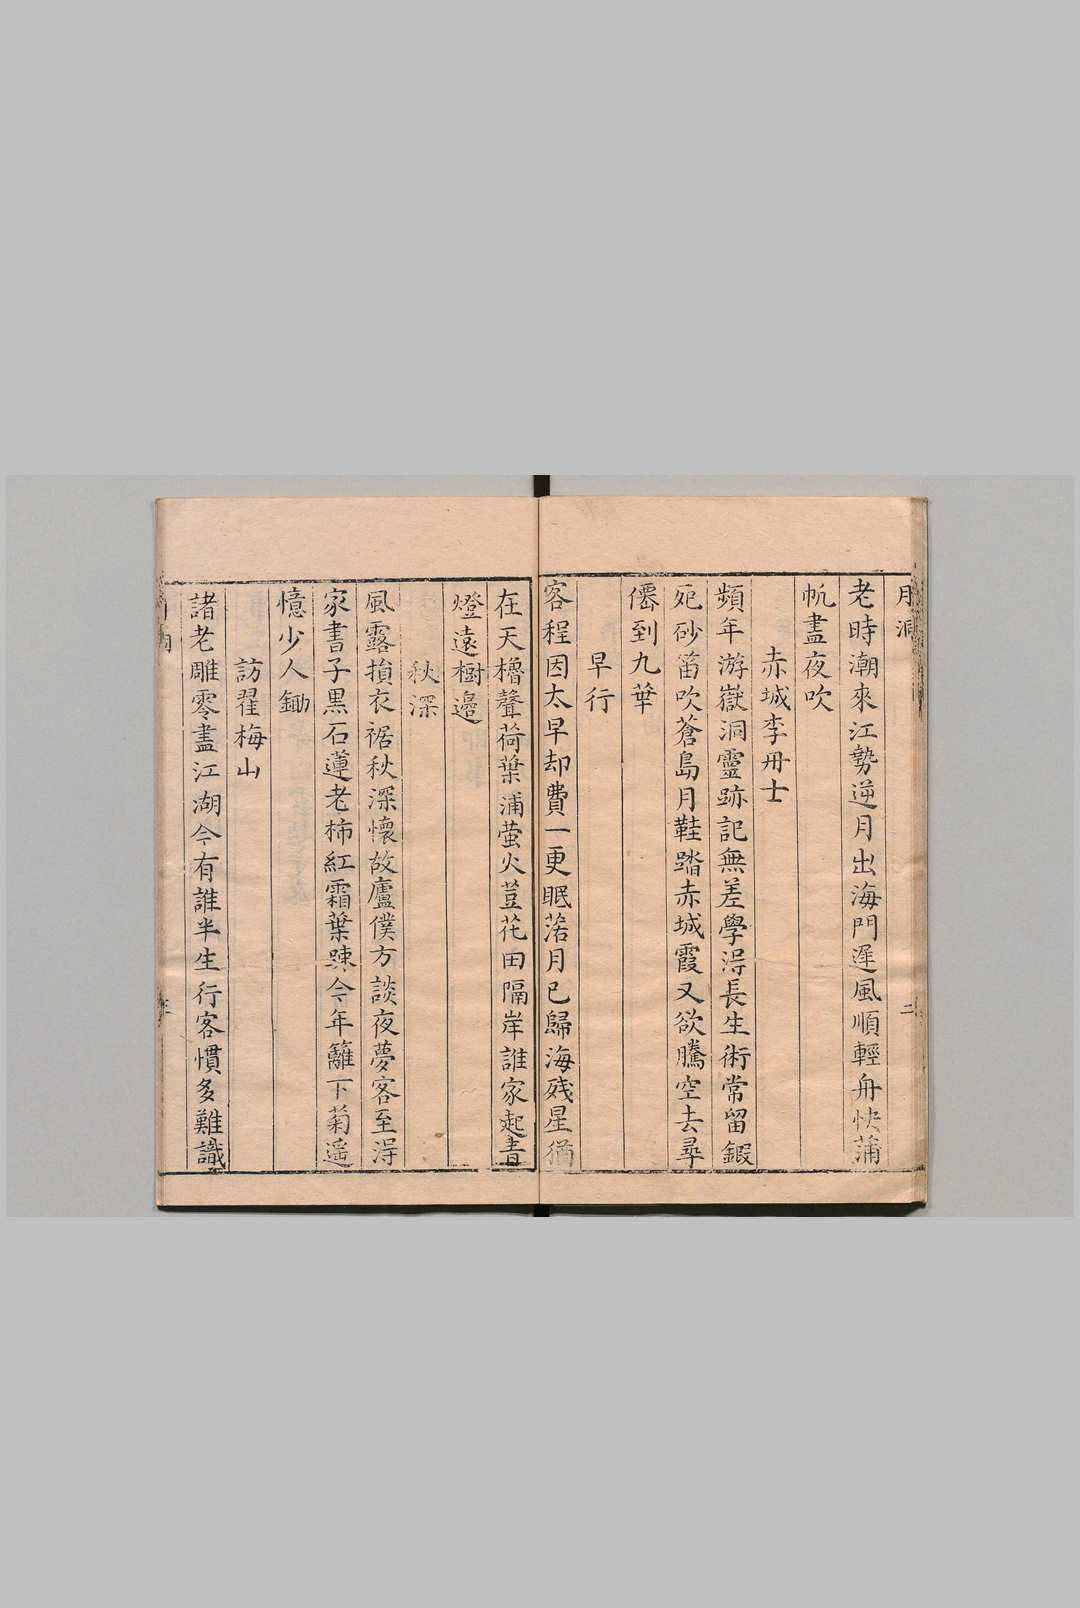 月洞
二
老時潮來江勢逆月出海門遲風順輕舟快蒲
帆盡夜吹
赤城李丹士
頻年游嶽洞靈跡記無差學淂長生術常留鍜
死砂笛吹蒼島月鞋踏赤城霞又欲騰空去尋
僊到九華
早行
客程因太早却費一更眠落月已歸海殘星猶
在天櫓聲荷葉浦萤火荳花田隔岸誰家起書
燈遠樹邉
秋深
風露損衣裾秋深懷故廬僕方談夜夢客至淂
家書子黒石蓮老柿紅霜葉踈今年籬下菊遥
憶少人鋤
訪翟梅山
諸老雕零盡江湖今有誰半生行客慣多難識